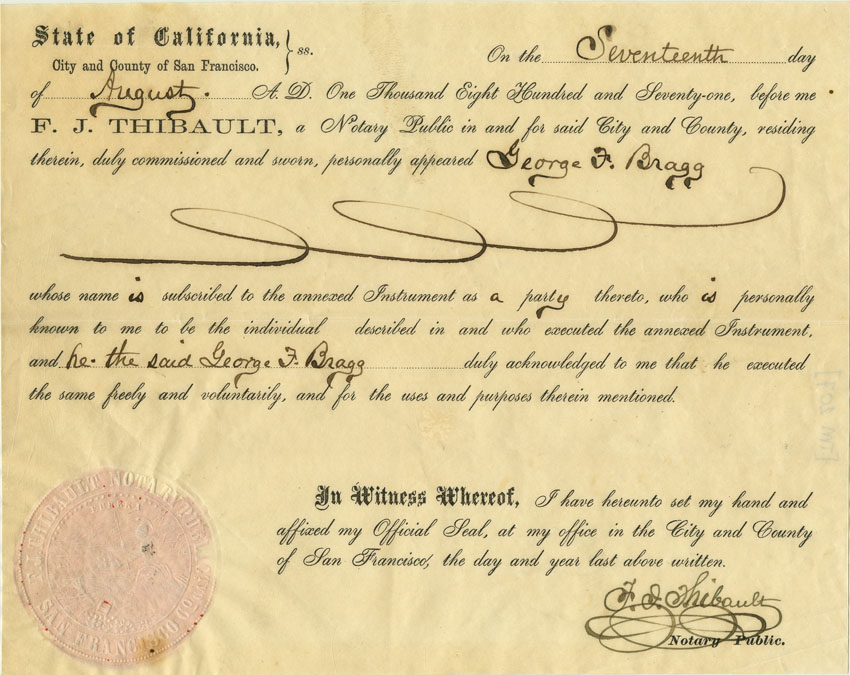 State of California, } ss.
City and County of San Francisco.
On the Seventeenth day
of August. A. D. One Thousand Eight Hundred and Seventy-one, before me
F. J. THIBAULT, a Notary Public in and for said City and County, residing
therein, duly commissioned and sworn, personally appeared George F. Bragg
whose name is subscribed to the annexed Instrument as a party thereto, who is personally
known to me to be the individual described in and who executed the annexed Instrument,
and he. the said George F. Bragg duly acknowledged to me that he executed
the same freely and voluntarily, and for the uses and purposes therein mentioned.
In Witness Whereof, I have hereunto set my hand and
affixed my Official Seal, at my office in the City and County
of San Francisco, the day and year last above written.
F. J. Thibault
Notary Public.
F. J. THIBAULT NOTARY PUBLIC
SAN FRANCISCO